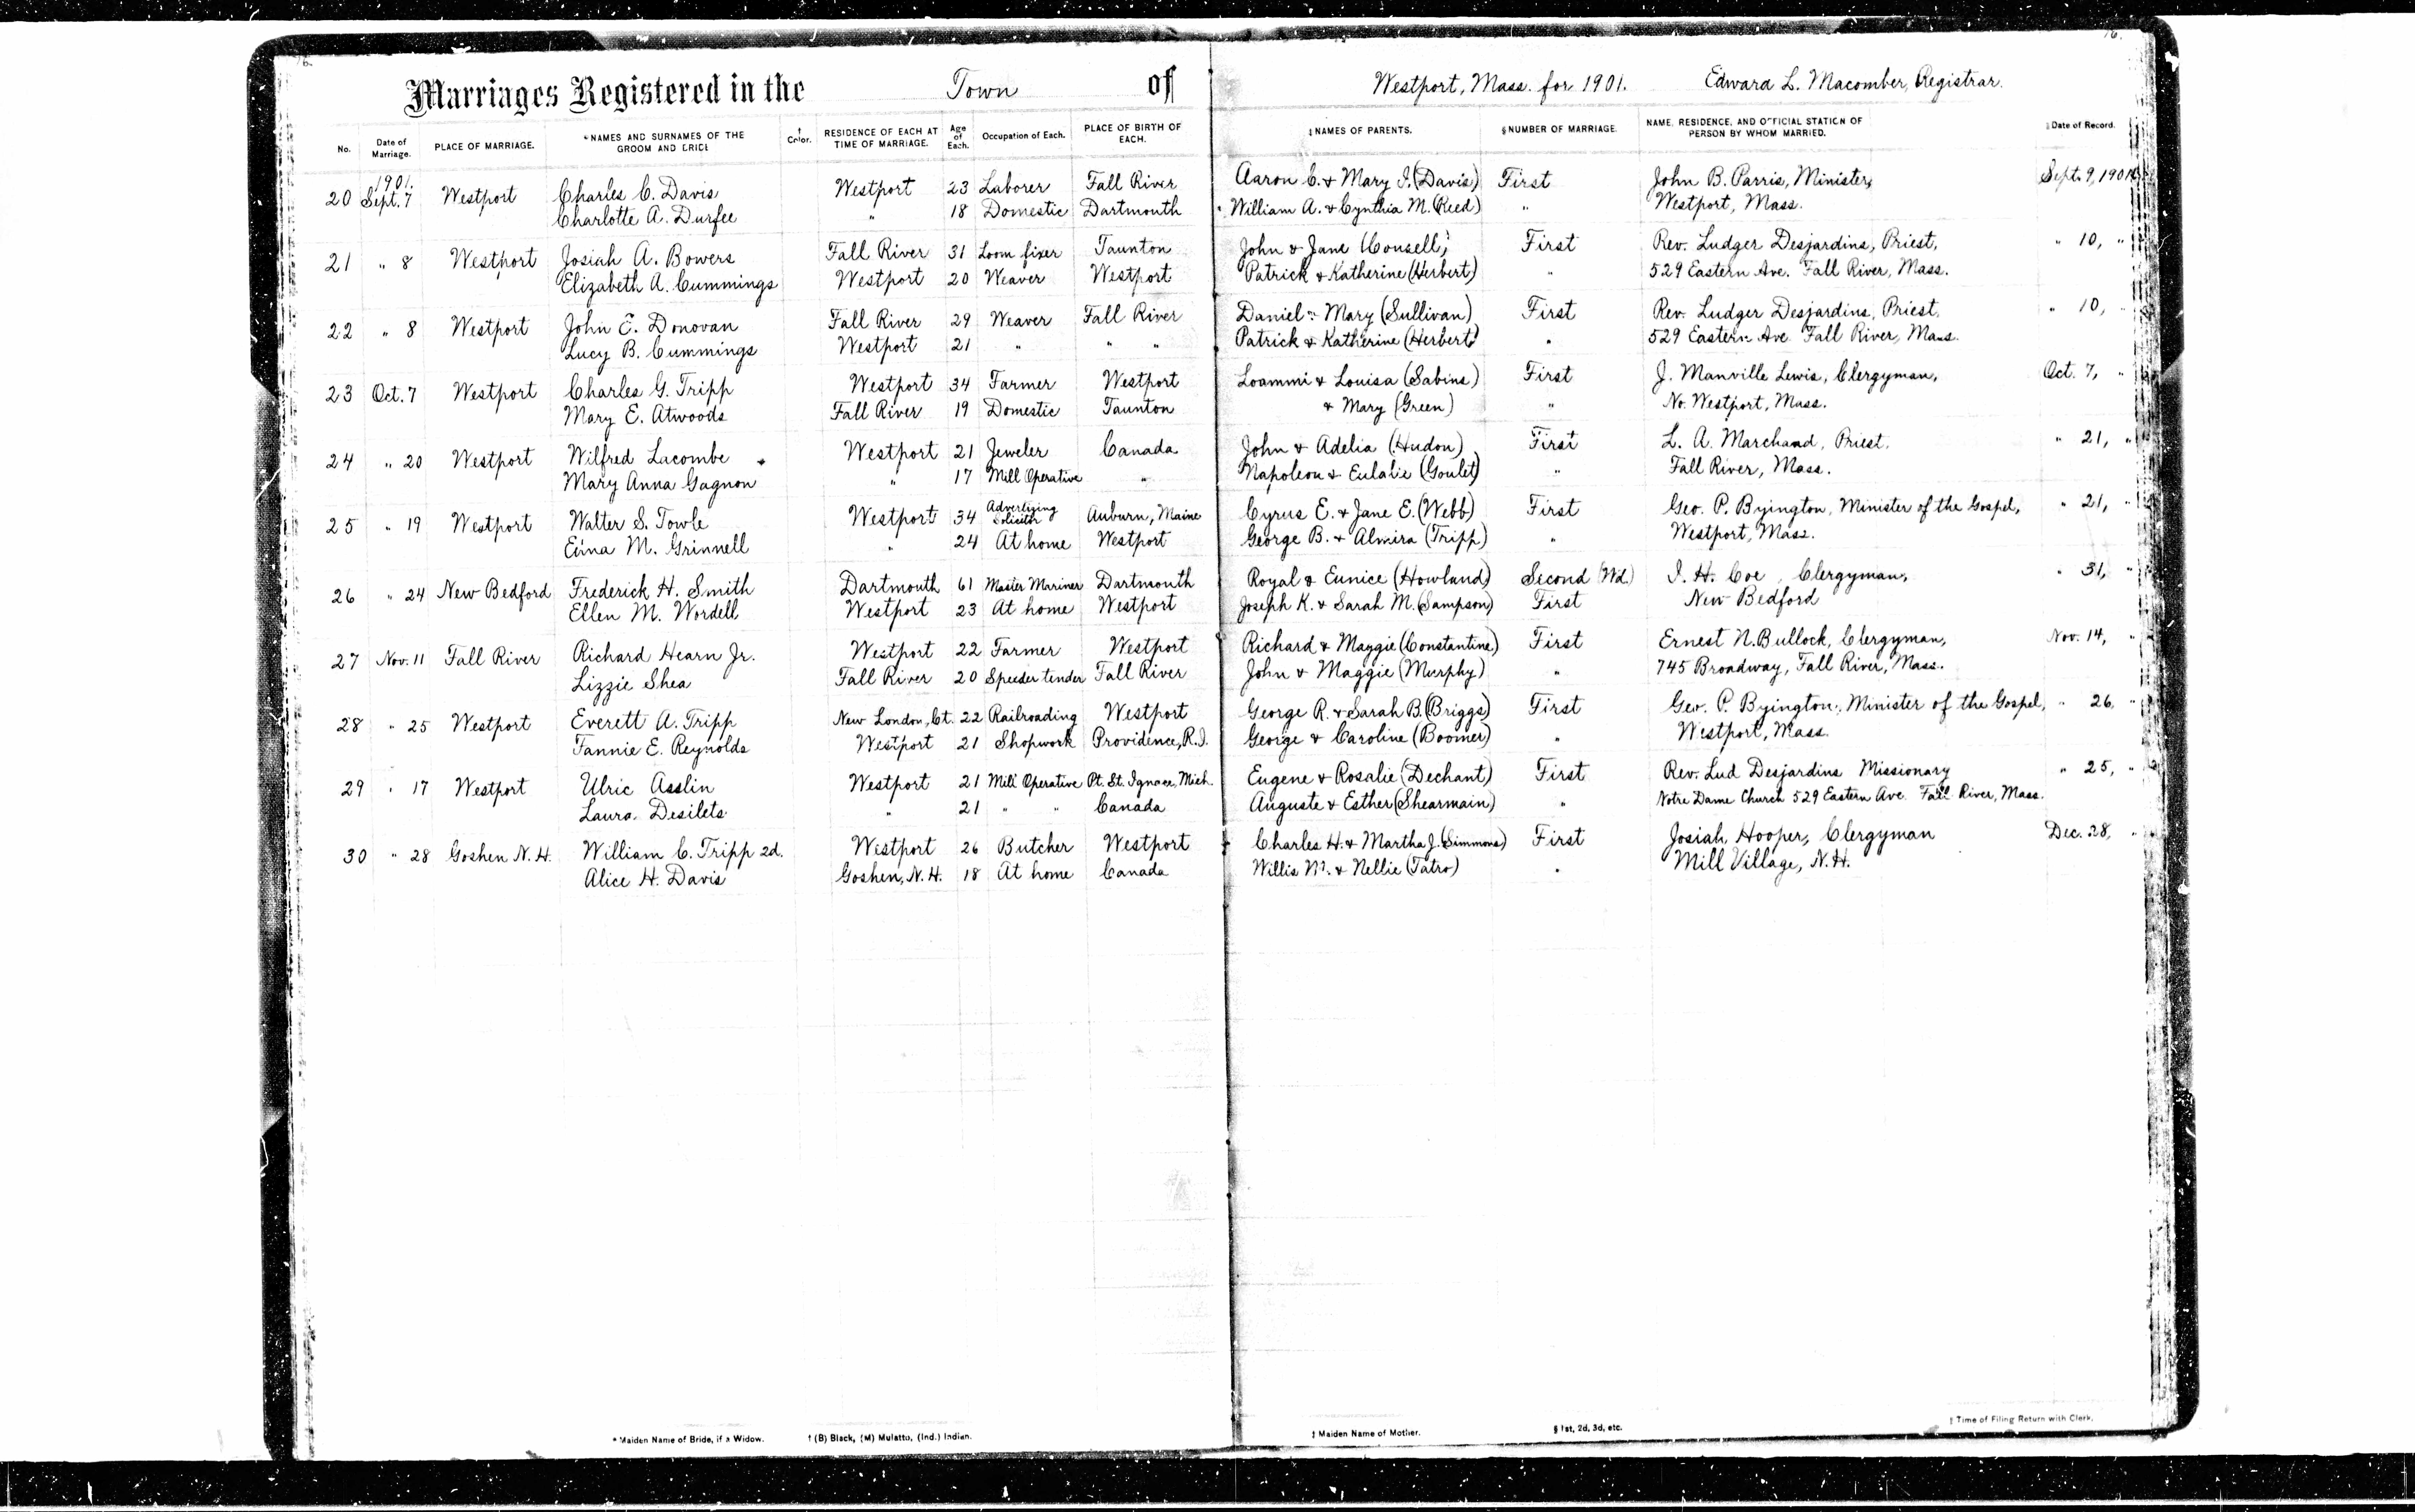 76. 76.
Marriages Registered in the Town of Westport, Mass. for 1901. Edward L. Macomber, Registrar.
No. Date of Marriage. PLACE OF MARRIAGE. *NAMES AND SURNAMES OF THE GROOM AND BRIDE † Color. RESIDENCE OF EACH AT TIME OF MARRIAGE. Age of Each. Occupation of Each. PLACE OF BIRTH OF EACH. ‡NAMES OF PARENTS. §NUMBER OF MARRIAGE. NAME, RESIDENCE, AND OFFICIAL STATION OF PERSON BY WHOM MARRIED. Date of Record.
1901.
20 Sept. 7 Westport Charles C. Davis Westport 23 Laborer Fall River Aaron C. & Mary I. (Davis) First John B. Parris, Minister, Sept. 9, 1901
Charlotte A. Durfee " 18 Domestic Dartmouth William A. & Cynthia M. (Reed) " Westport, Mass.
21 " 8 Westport Josiah A. Bowers Fall River 31 Loom fixer Taunton John & Jane (Counsell) First Rev. Ludger Desjardins, Priest, " 10, "
Elizabeth A. Cummings Westport 20 Weaver Westport Patrick & Katherine (Herbert) " 529 Eastern Ave. Fall River, Mass.
22 " 8 Westport John E. Donovan Fall River 29 Weaver Fall River Daniel & Mary (Sullivan) First Rev. Ludger Desjardins, Priest. " 10, "
Lucy B. Cummings Westport 21 " " " Patrick & Katherine (Herbert) " 529 Eastern Ave Fall River, Mass.
23 Oct. 7 Westport Charles G. Tripp Westport 34 Farmer Westport Loammi & Louisa (Sabins) First J. Manville Lewis, Clergyman, Oct. 7, "
Mary E. Atwoods Fall River 19 Domestic Taunton & Mary (Green) " No. Westport, Mass.
24 " 20 Westport Wilfred Lacombe Westport 21 Jeweler Canada John & Adelia (Hudon) First L. A. Marchand, Priest. " 21, "
Mary Anna Gagnon " 17 Mill Operative " Napoleon & Eulalie (Goulet) " Fall River, Mass.
25 " 19 Westport Walter S. Towle Westport 34 Advertizing Solicitor Auburn, Maine Cyrus E. & Jane E. (Webb) First Geo. P. Byington, Minister of the Gospel, " 21, "
Edna M. Grinnell " 24 At home Westport George B. & Almira (Tripp) " Westport, Mass.
26 " 24 New Bedford Frederick H. Smith Dartmouth 61 Master Mariner Dartmouth Royal & Eunice (Howland) Second (Wd.) I. H. Coe, Clergyman, " 31, "
Ellen M. Wordell Westport 23 At home Westport Joseph K. & Sarah M. (Sampson) First New Bedford
27 Nov. 11 Fall River Richard Hearn Jr. Westport 22 Farmer Westport Richard & Maggie (Constantine) First Ernest N. Bullock, Clergyman, Nov. 14, "
Lizzie Shea Fall River 20 Speeder tender Fall River John & Maggie (Murphy) " 745 Broadway, Fall River, Mass.
28 " 25 Westport Everett A. Tripp New London, Ct. 22 Railroading Westport George R. & Sarah B. (Briggs) First Geo. P. Byington, Minister of the Gospel, " 26, "
Fannie E. Reynolds Westport 21 Shopwork Providence, R.I. George & Caroline (Boomer) " Westport, Mass.
29 " 17 Westport Ulric Asslin Westport 21 Mill Operative Pt. St. Ignace, Mich. Eugene & Rosalie (Dechant) First Rev. Lud Desjardins Missionary " 25, "
Laura Desilets " 21 " " Canada Auguste & Esther (Shearmain) " Notre Dame Church 529 Eastern Ave. Fall River, Mass.
30 " 28 Goshen N. H. William C. Tripp 2d. Westport 26 Butcher Westport Charles H. & Martha J. (Simmons) First Josiah Hooper, Clergyman Dec. 28, "
Alice H. Davis Goshen, N. H. 18 At home Canada Willis M. & Nellie (Tatro) " Mill Village, N. H.
* Maiden Name of Bride, if a Widow. † (B) Black, (M) Mulatto, (Ind.) Indian. ‡ Maiden Name of Mother. § 1st, 2d, 3d, etc. Time of Filing Return with Clerk.